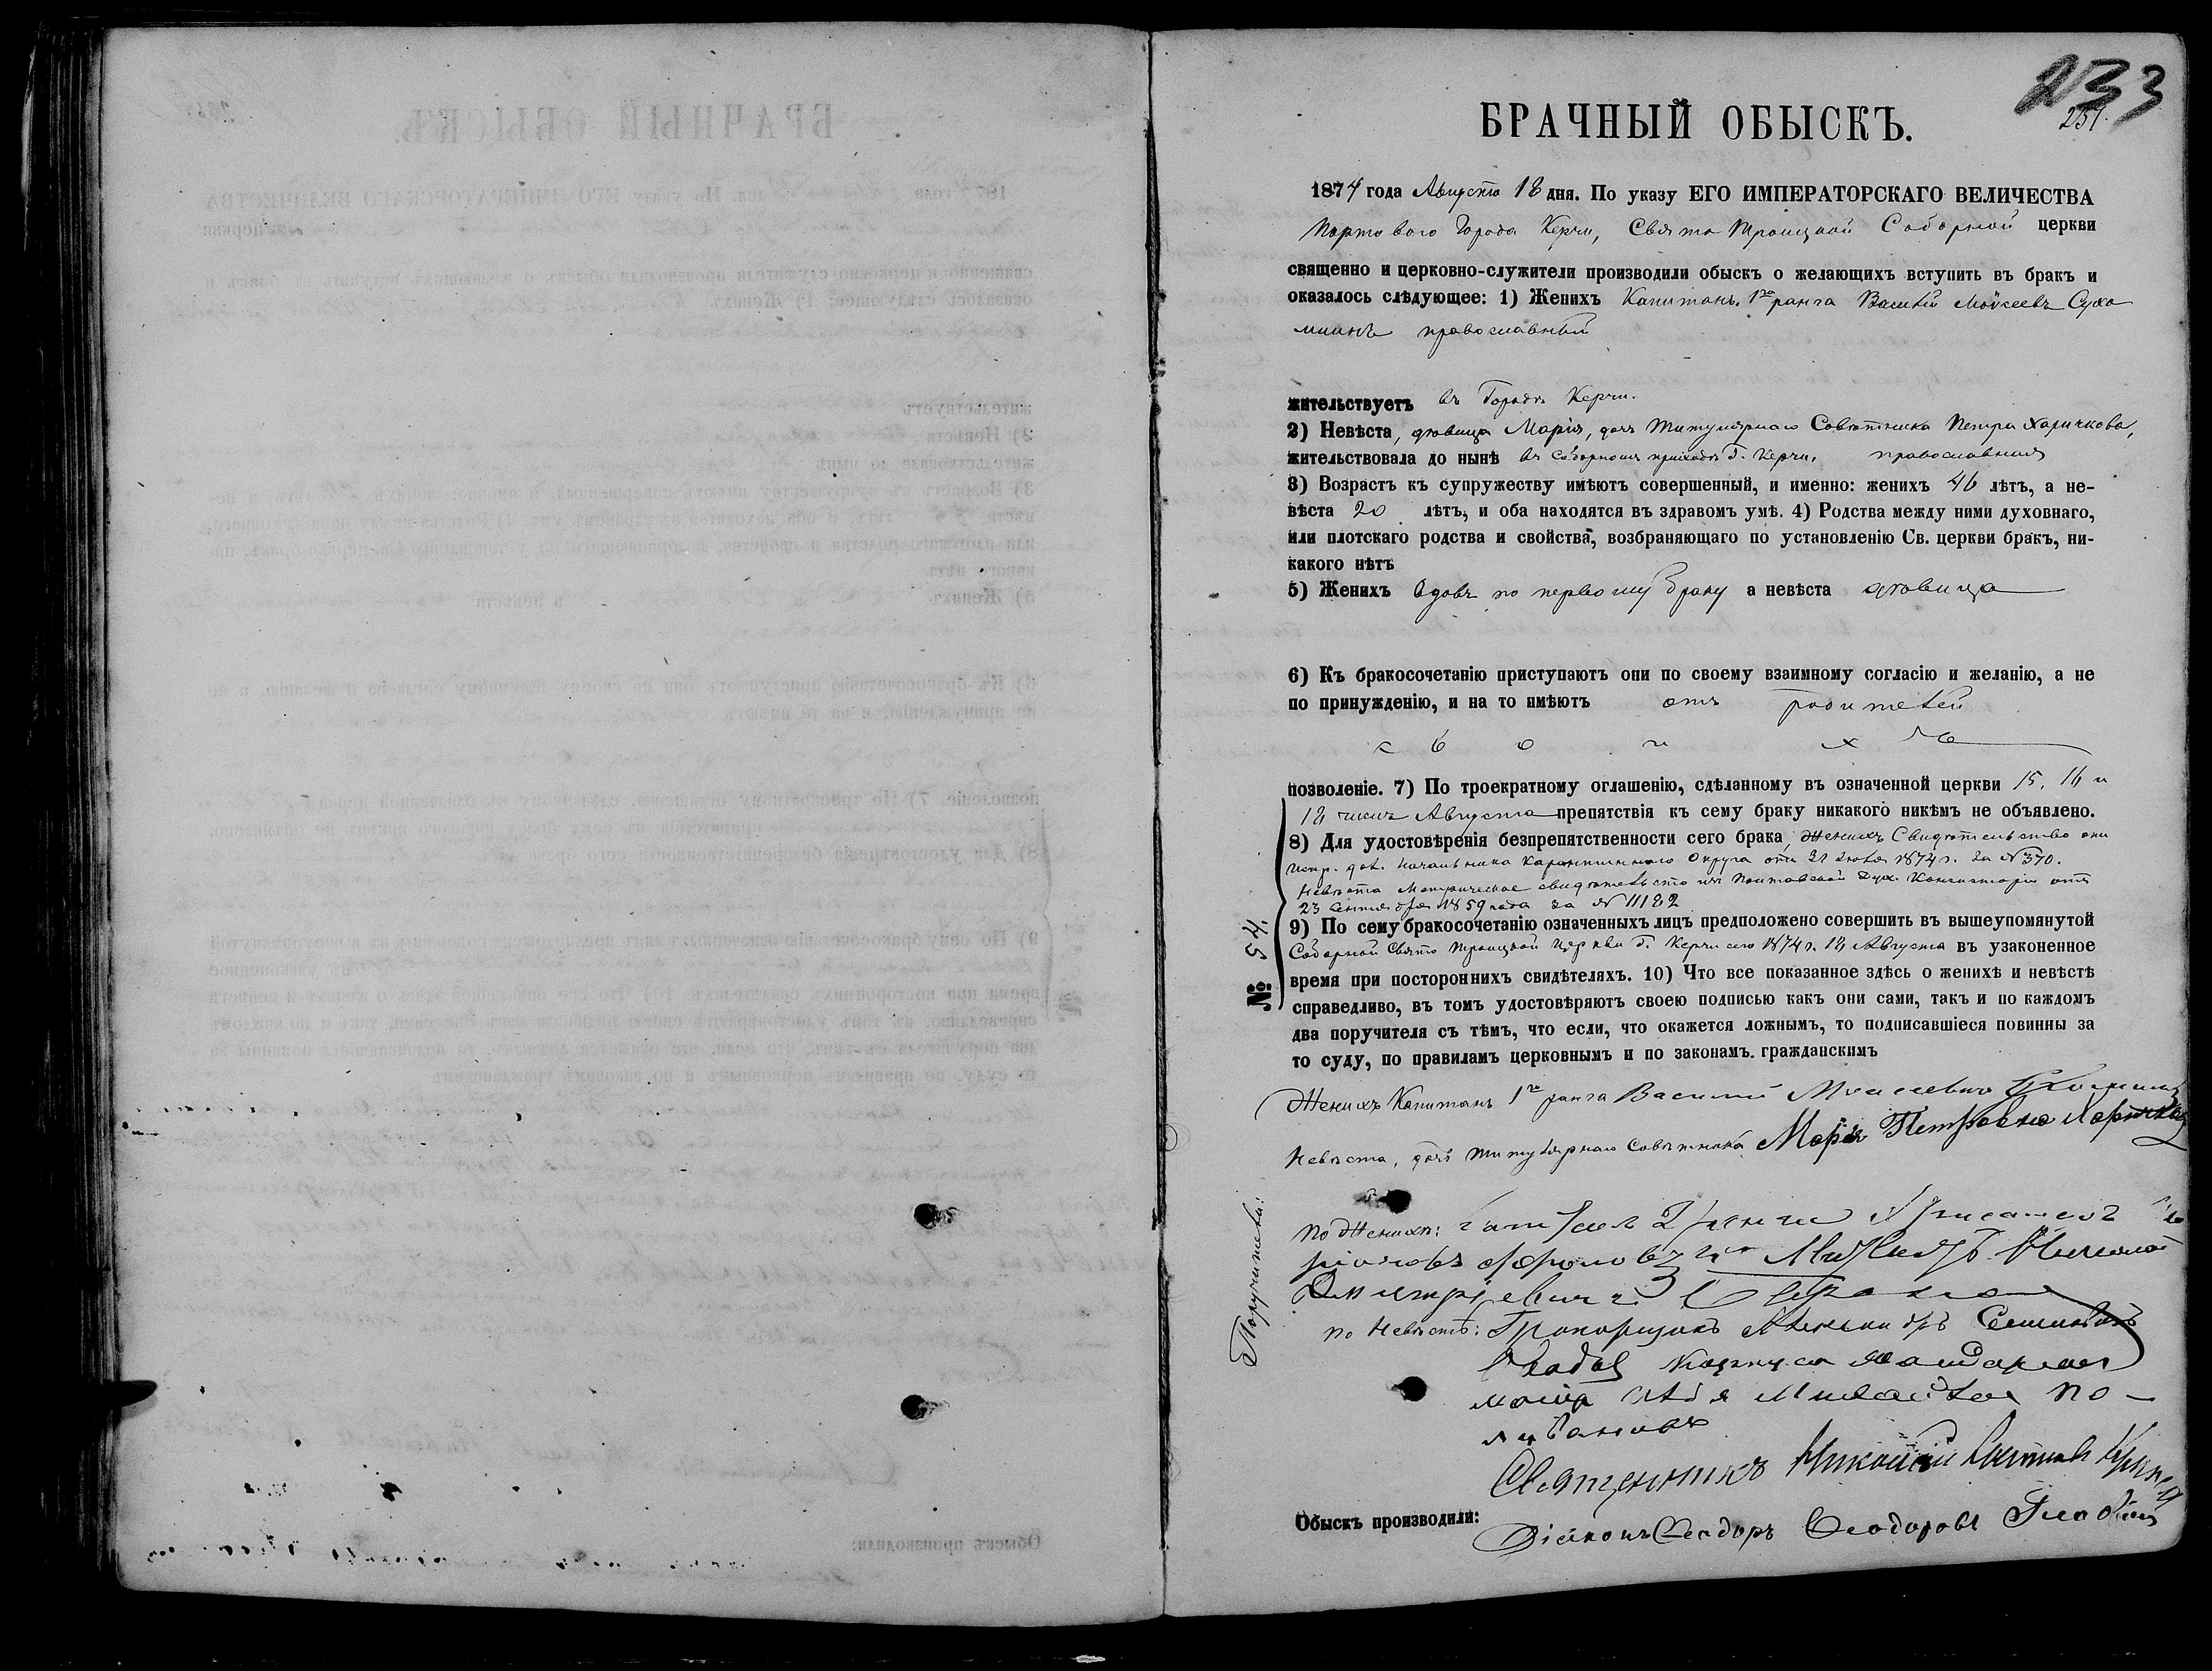 233
251.
БРАЧНЫЙ ОБЫСКЪ.
1874 года Августа 18 дня. По указу ЕГО ИМПЕРАТОРСКАГО ВЕЛИЧЕСТВА
Портоваго Города Керчи, Свято Троицкой Соборной церкви
священно и церковно-служители производили обыскъ о желающихъ вступить въ бракъ и
оказалось слѣдующее: 1) Женихъ Капитанъ 1го ранга Василій Моѵсеевъ Сухо
минъ православный
жительствуетъ въ Городѣ Керчи.
2) Невѣста, дѣвица Марія, дочь Титулярнаго Совѣтника Петра Харичкова,
жительствовала до нынѣ въ Соборномъ приходѣ г. Керчи. православная
3) Возрастъ къ супружеству имѣютъ совершенный, и именно: женихъ 46 лѣтъ, а не-
вѣста 20 лѣтъ, и оба находятся въ здравомъ умѣ. 4) Родства между ними духовнаго,
или плотскаго родства и свойства, возбраняющаго по установленію Св. церкви бракъ, ни-
какого нѣтъ
5) Женихъ вдовъ по первому браку а невѣста дѣвица
6) Къ бракосочетанію приступаютъ они по своему взаимному согласію и желанію, а не
по принужденію, и на то имѣютъ отъ родителей
своихъ
позволеніе. 7) По троекратному оглашенію, сдѣланному въ означенной церкви 15, 16 и
18 числъ Августа препятствія къ сему браку никакого никѣмъ не объявлено.
8) Для удостовѣренія безпрепятственности сего брака, Женихъ Свидѣтельство отъ
Испр. дол. Начальника Карантиннаго Округа отъ 31 Іюля 1874 г. за № 370.
Невѣста Метрическое свидѣтельство изъ Полтавской Дух. Консисторіи отъ
23 Сентября 1859 года за № 11182
9) По сему бракосочетанію означенныхъ лицъ предположено совершить въ вышеупомянутой
Соборной Свято Троицкой церкви г. Керчи сего 1874 г. 18 Августа въ узаконенное
время при постороннихъ свидѣтеляхъ. 10) Что все показанное здѣсь о женихѣ и невѣстѣ
справедливо, въ томъ удостовѣряютъ своею подписью какъ они сами, такъ и по каждомъ
два поручителя съ тѣмъ, что если, что окажется ложнымъ, то подписавшіеся повинны за
то суду, по правиламъ церковнымъ и по законамъ. гражданскимъ
№ 54.
Женихъ Капитанъ 1го ранга Василій
Невѣста, дочь Титулярнаго Совѣтника Марія Петровна Харичкова
Поручители:
по Женихѣ:
Николай
Дмитріевичъ
по Невѣстѣ: Прапорщикъ Александръ
Священникъ Николай
Обыскъ производили:
Діаконъ Ѳеодоръ Ѳеодоровъ